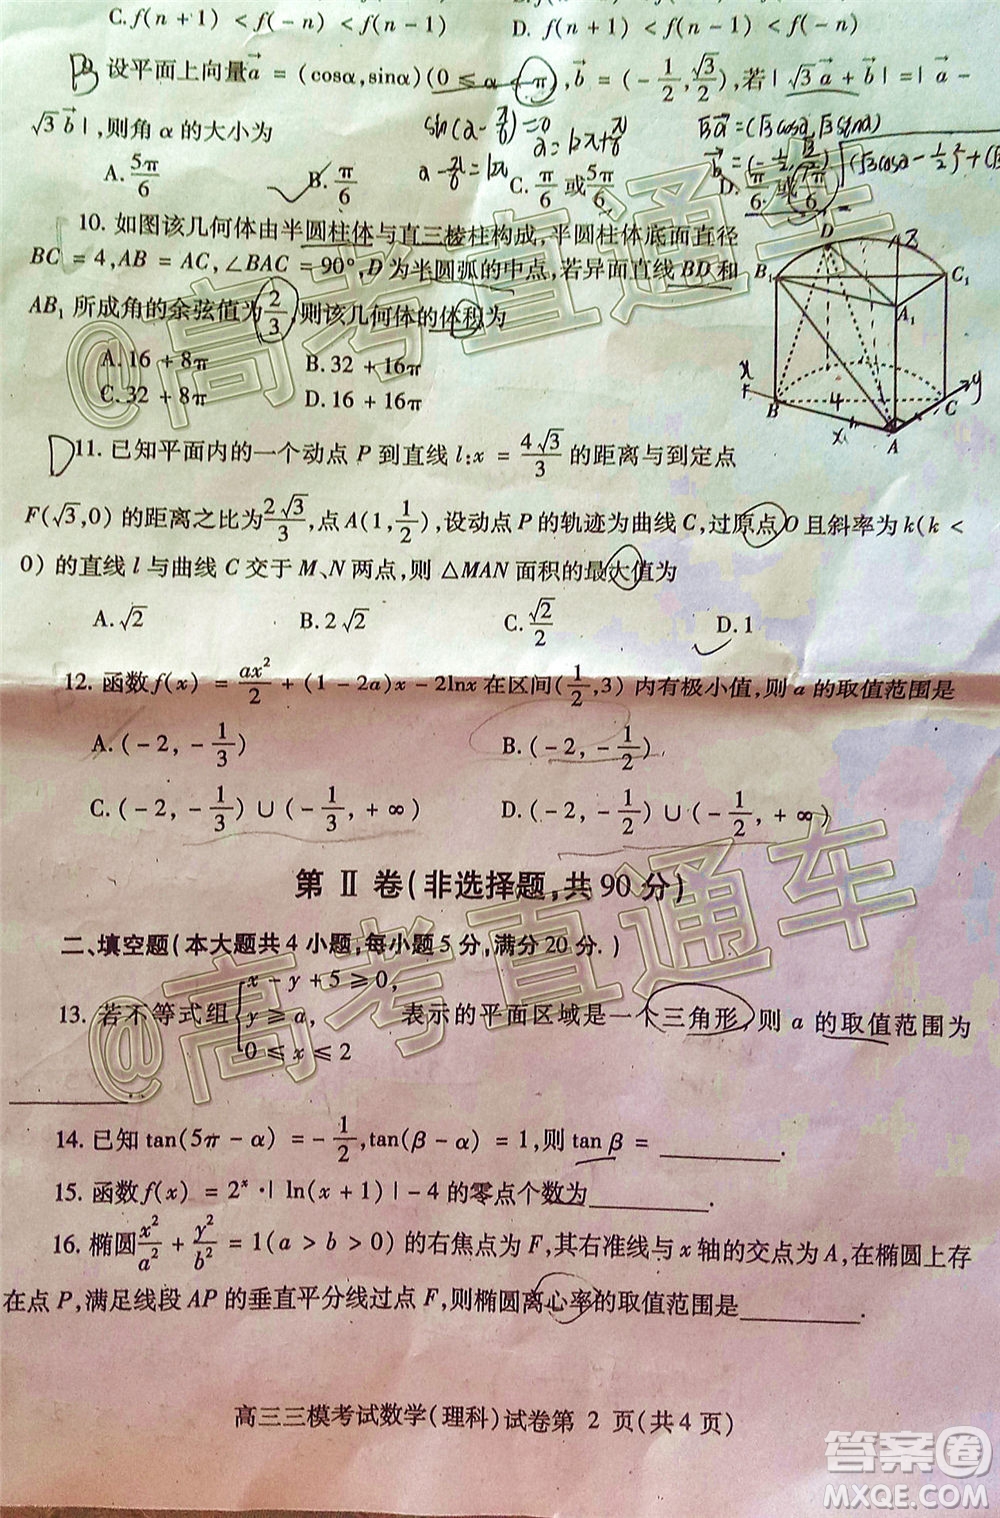 C. f(n + 1) < f(-n) < f(n - 1)    D. f(n + 1) < f(n - 1) < f(-n)
设平面上向量a = (cosα,sinα)(0 ≤ α < π), b = (-1/2, √3/2),若|√3 a + b| = | a -
√3 b |,则角 α 的大小为
sin(α - π/6) = 0
α - π/6 = kπ
α = kπ + π/6
√3a = (√3cosα, √3sinα)
A. 5π/6    B. π/6    C. π/6 或 5π/6    D. π/6 或
10. 如图该几何体由半圆柱体与直三棱柱构成,半圆柱体底面直径
BC = 4,AB = AC,∠BAC = 90°,D 为半圆弧的中点,若异面直线 BD 和
AB₁ 所成角的余弦值为 2/3,则该几何体的体积为
A. 16 + 8π    B. 32 + 16π
C. 32 + 8π    D. 16 + 16π
D
B₁
C₁
A₁
z
x
y
B
4
C
A
D 11. 已知平面内的一个动点 P 到直线 l:x = 4√3/3 的距离与到定点
F(√3,0) 的距离之比为 2√3/3,点 A(1, 1/2),设动点 P 的轨迹为曲线 C,过原点 O 且斜率为 k(k <
0) 的直线 l 与曲线 C 交于 M、N 两点,则 △MAN 面积的最大值为
A. √2    B. 2√2    C. √2/2    D. 1
12. 函数 f(x) = ax²/2 + (1 - 2a)x - 2lnx 在区间 (1/2,3) 内有极小值,则 a 的取值范围是
A. (-2, -1/3)    B. (-2, -1/2)
C. (-2, -1/3) ∪ (-1/3, +∞)    D. (-2, -1/2) ∪ (-1/2, +∞)
第 Ⅱ 卷(非选择题,共 90 分)
二、填空题(本大题共 4 小题,每小题 5 分,满分 20 分.)
13. 若不等式组 { x - y + 5 ≥ 0, y ≥ a, 0 ≤ x ≤ 2 表示的平面区域是一个三角形,则 a 的取值范围为
________.
14. 已知 tan(5π - α) = -1/2,tan(β - α) = 1,则 tan β = ________.
15. 函数 f(x) = 2ˣ·| ln(x + 1) | - 4 的零点个数为________.
16. 椭圆 x²/a² + y²/b² = 1(a > b > 0) 的右焦点为 F,其右准线与 x 轴的交点为 A,在椭圆上存
在点 P,满足线段 AP 的垂直平分线过点 F,则椭圆离心率的取值范围是________.
高三三模考试数学(理科)试卷第 2 页(共 4 页)
@高考直通车
@高考直通车
答案圈
MXQE.COM